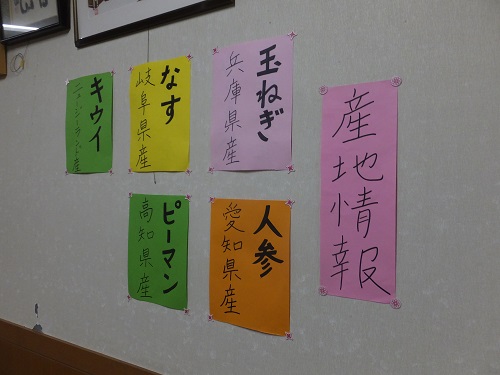 産地情報
玉ねぎ
兵庫県産
なす
岐阜県産
キウイ
ニュージーランド産
人参
愛知県産
ピーマン
高知県産